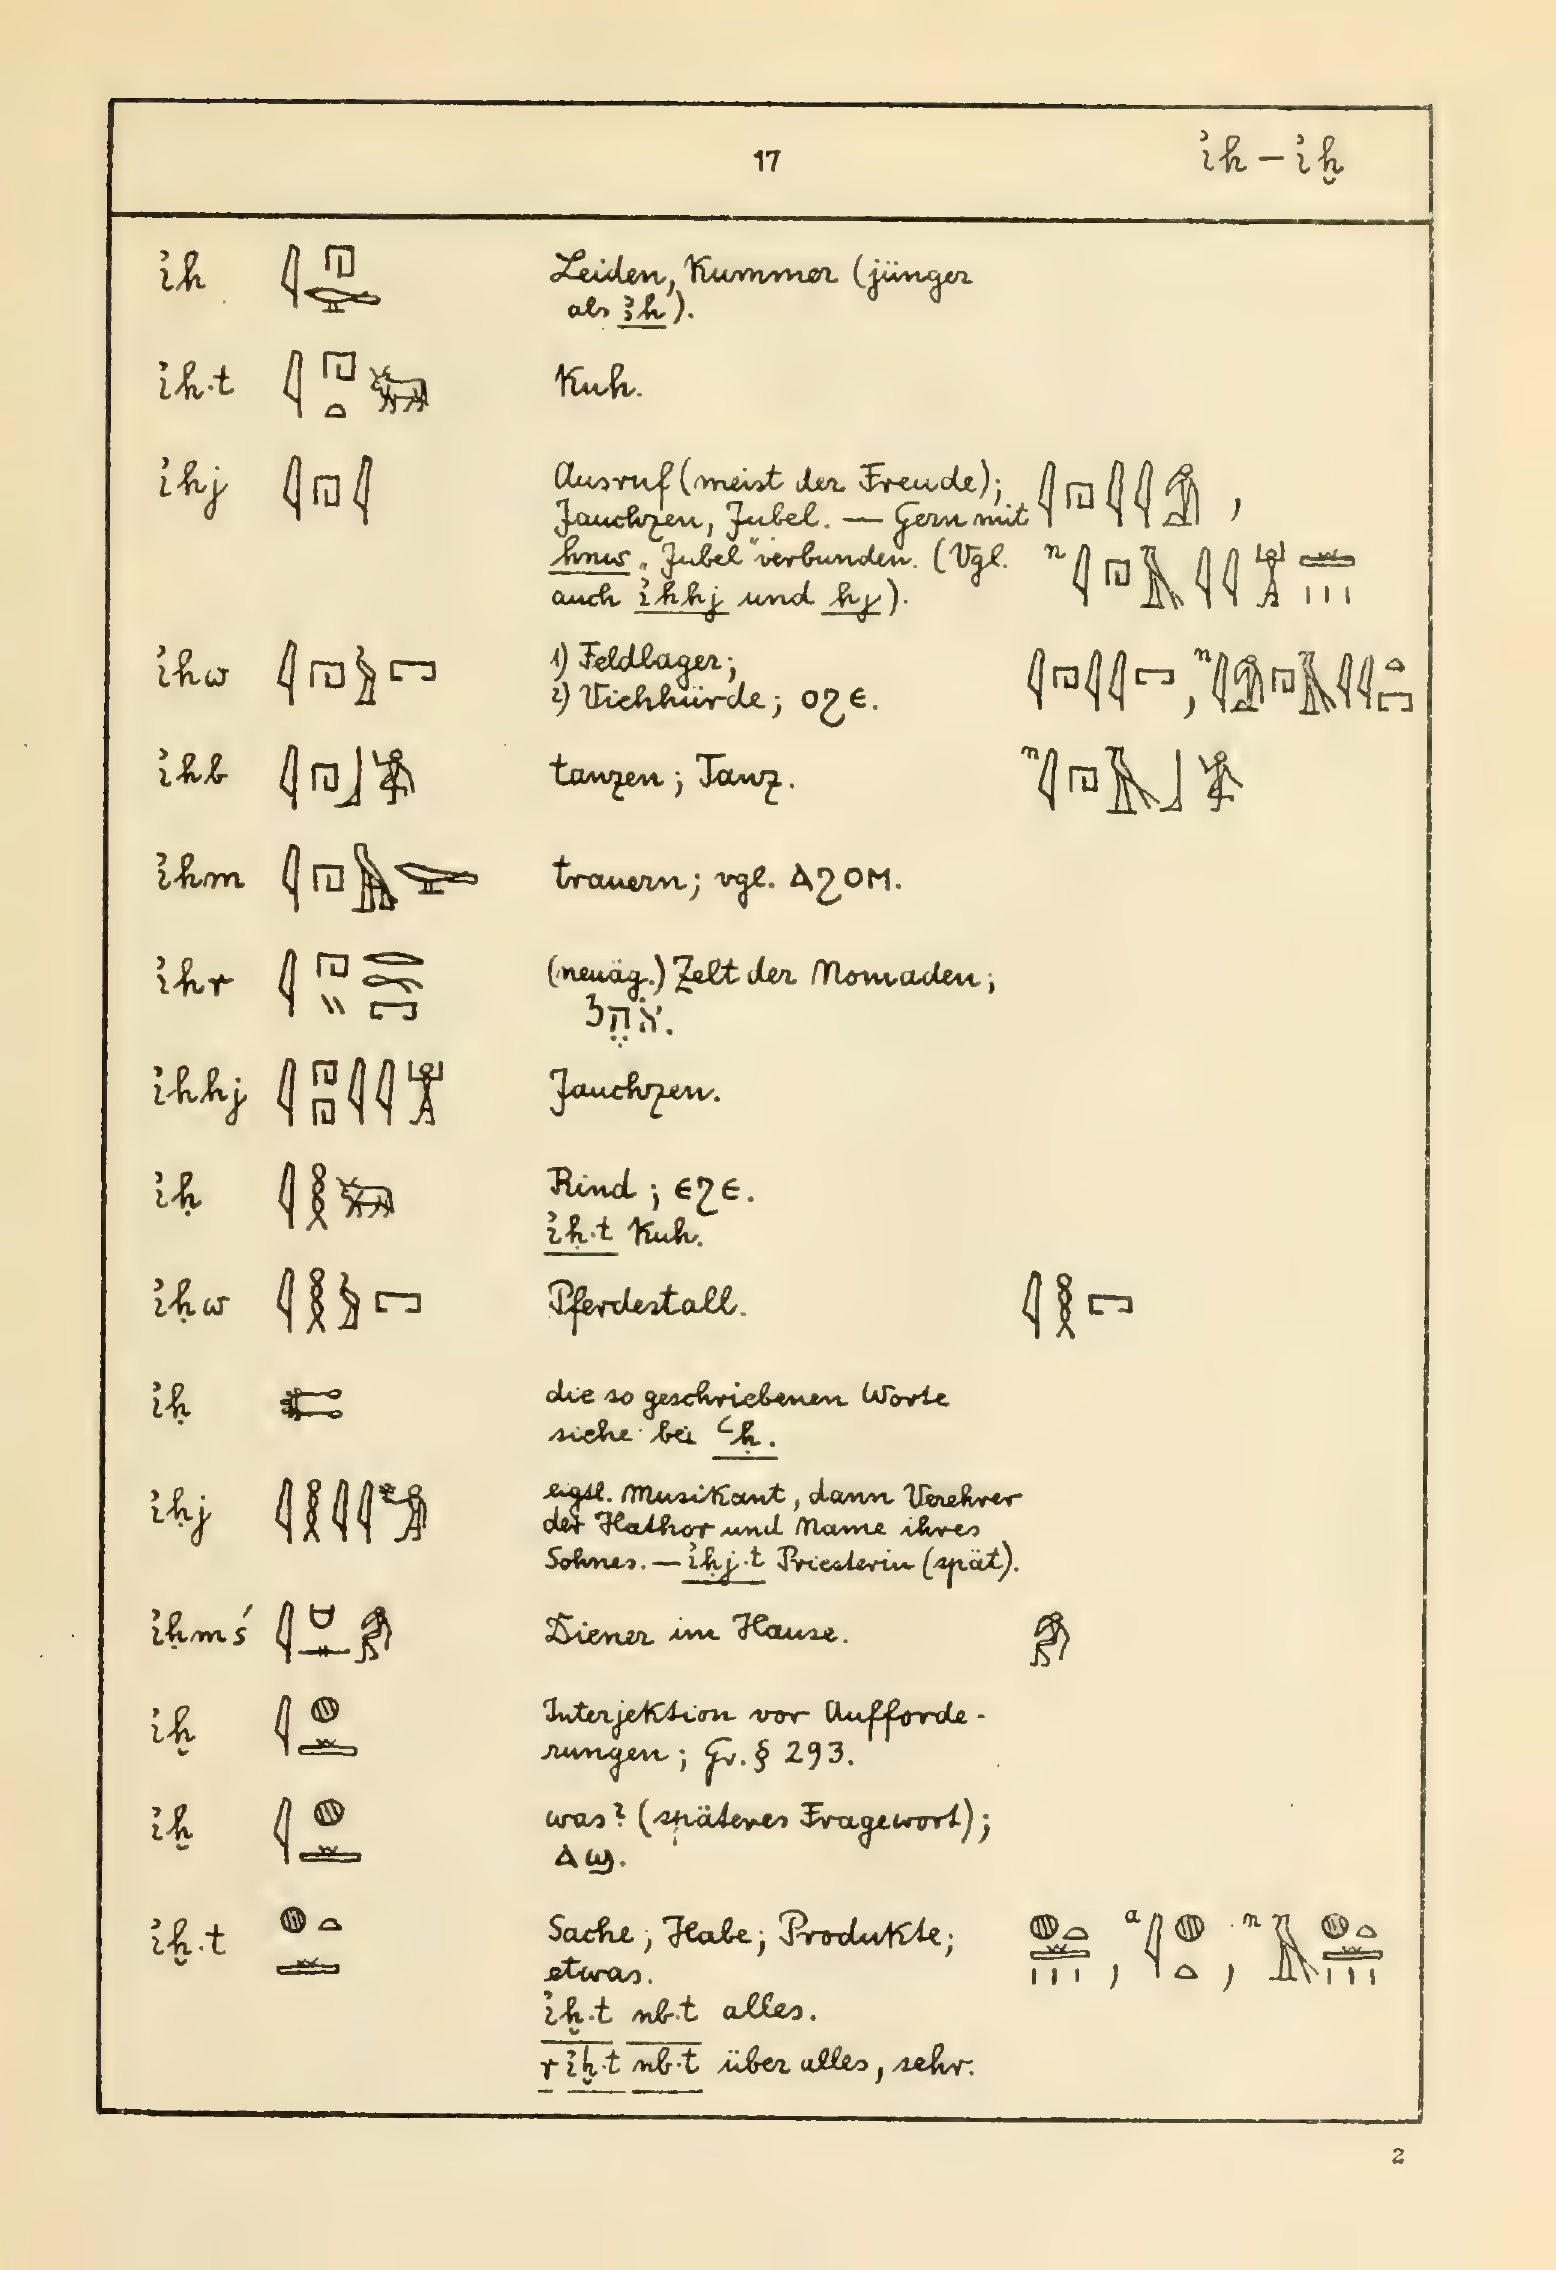 17
ı͗h – ı͗ḫ
ı͗h 𓇋𓉔𓅪 Leiden, Kummer (jünger
als ꜣh).
ı͗h·t 𓇋𓉔𓏏𓃒 Kuh.
ı͗hj 𓇋𓉔𓇋 Ausruf (meist der Freude); 𓇋𓉔𓇋𓇋𓀁,
Jauchzen, Jubel. — Gern mit
hnw „Jubel“ verbunden. (Vgl. n
auch ı͗hhj und hj).
ı͗hw 𓇋𓉔𓅱𓉐 1) Feldlager; 𓇋𓉔𓇋𓇋𓉐, n
2) Viehhürde; ⲟϩⲉ.
ı͗hb 𓇋𓉔𓃀 tanzen; Tanz. n𓇋𓉔𓄿𓃀
ı͗hm 𓇋𓉔𓅓𓅪 trauern; vgl. ⲁϩⲟⲙ.
ı͗hr 𓇋𓉔𓂋𓏭𓉐 (neuäg.) Zelt der Nomaden;
אֹהֶל.
ı͗hhj 𓇋𓉔𓉔𓇋𓇋𓀠 Jauchzen.
ı͗ḥ 𓇋𓎛𓃒 Rind; ⲉϩⲉ.
ı͗ḥ·t Kuh.
ı͗ḥw 𓇋𓎛𓅱𓉐 Pferdestall. 𓇋𓎛𓉐
ı͗ḥ die so geschriebenen Worte
siehe bei ꜥḥ.
ı͗ḥj 𓇋𓎛𓇋𓇋 eigtl. Musikant, dann Verehrer
der Hathor und Name ihres
Sohnes. — ı͗ḥj·t Priesterin (spät).
ı͗ḥmś Diener im Hause.
ı͗ḫ 𓇋𓐍𓏛 Interjektion vor Aufforde-
rungen; Gr. § 293.
ı͗ḫ 𓇋𓐍𓏛 was? (späteres Fragewort);
ⲁϣ.
ı͗ḫ·t 𓐍𓏏𓏛 Sache; Habe; Produkte; 𓐍𓏏𓏛𓏥, a𓇋𓐍𓏏, n𓄿𓐍𓏏𓏛𓏥
etwas.
ı͗ḫ·t nb·t alles.
r ı͗ḫ·t nb·t über alles, sehr.
2